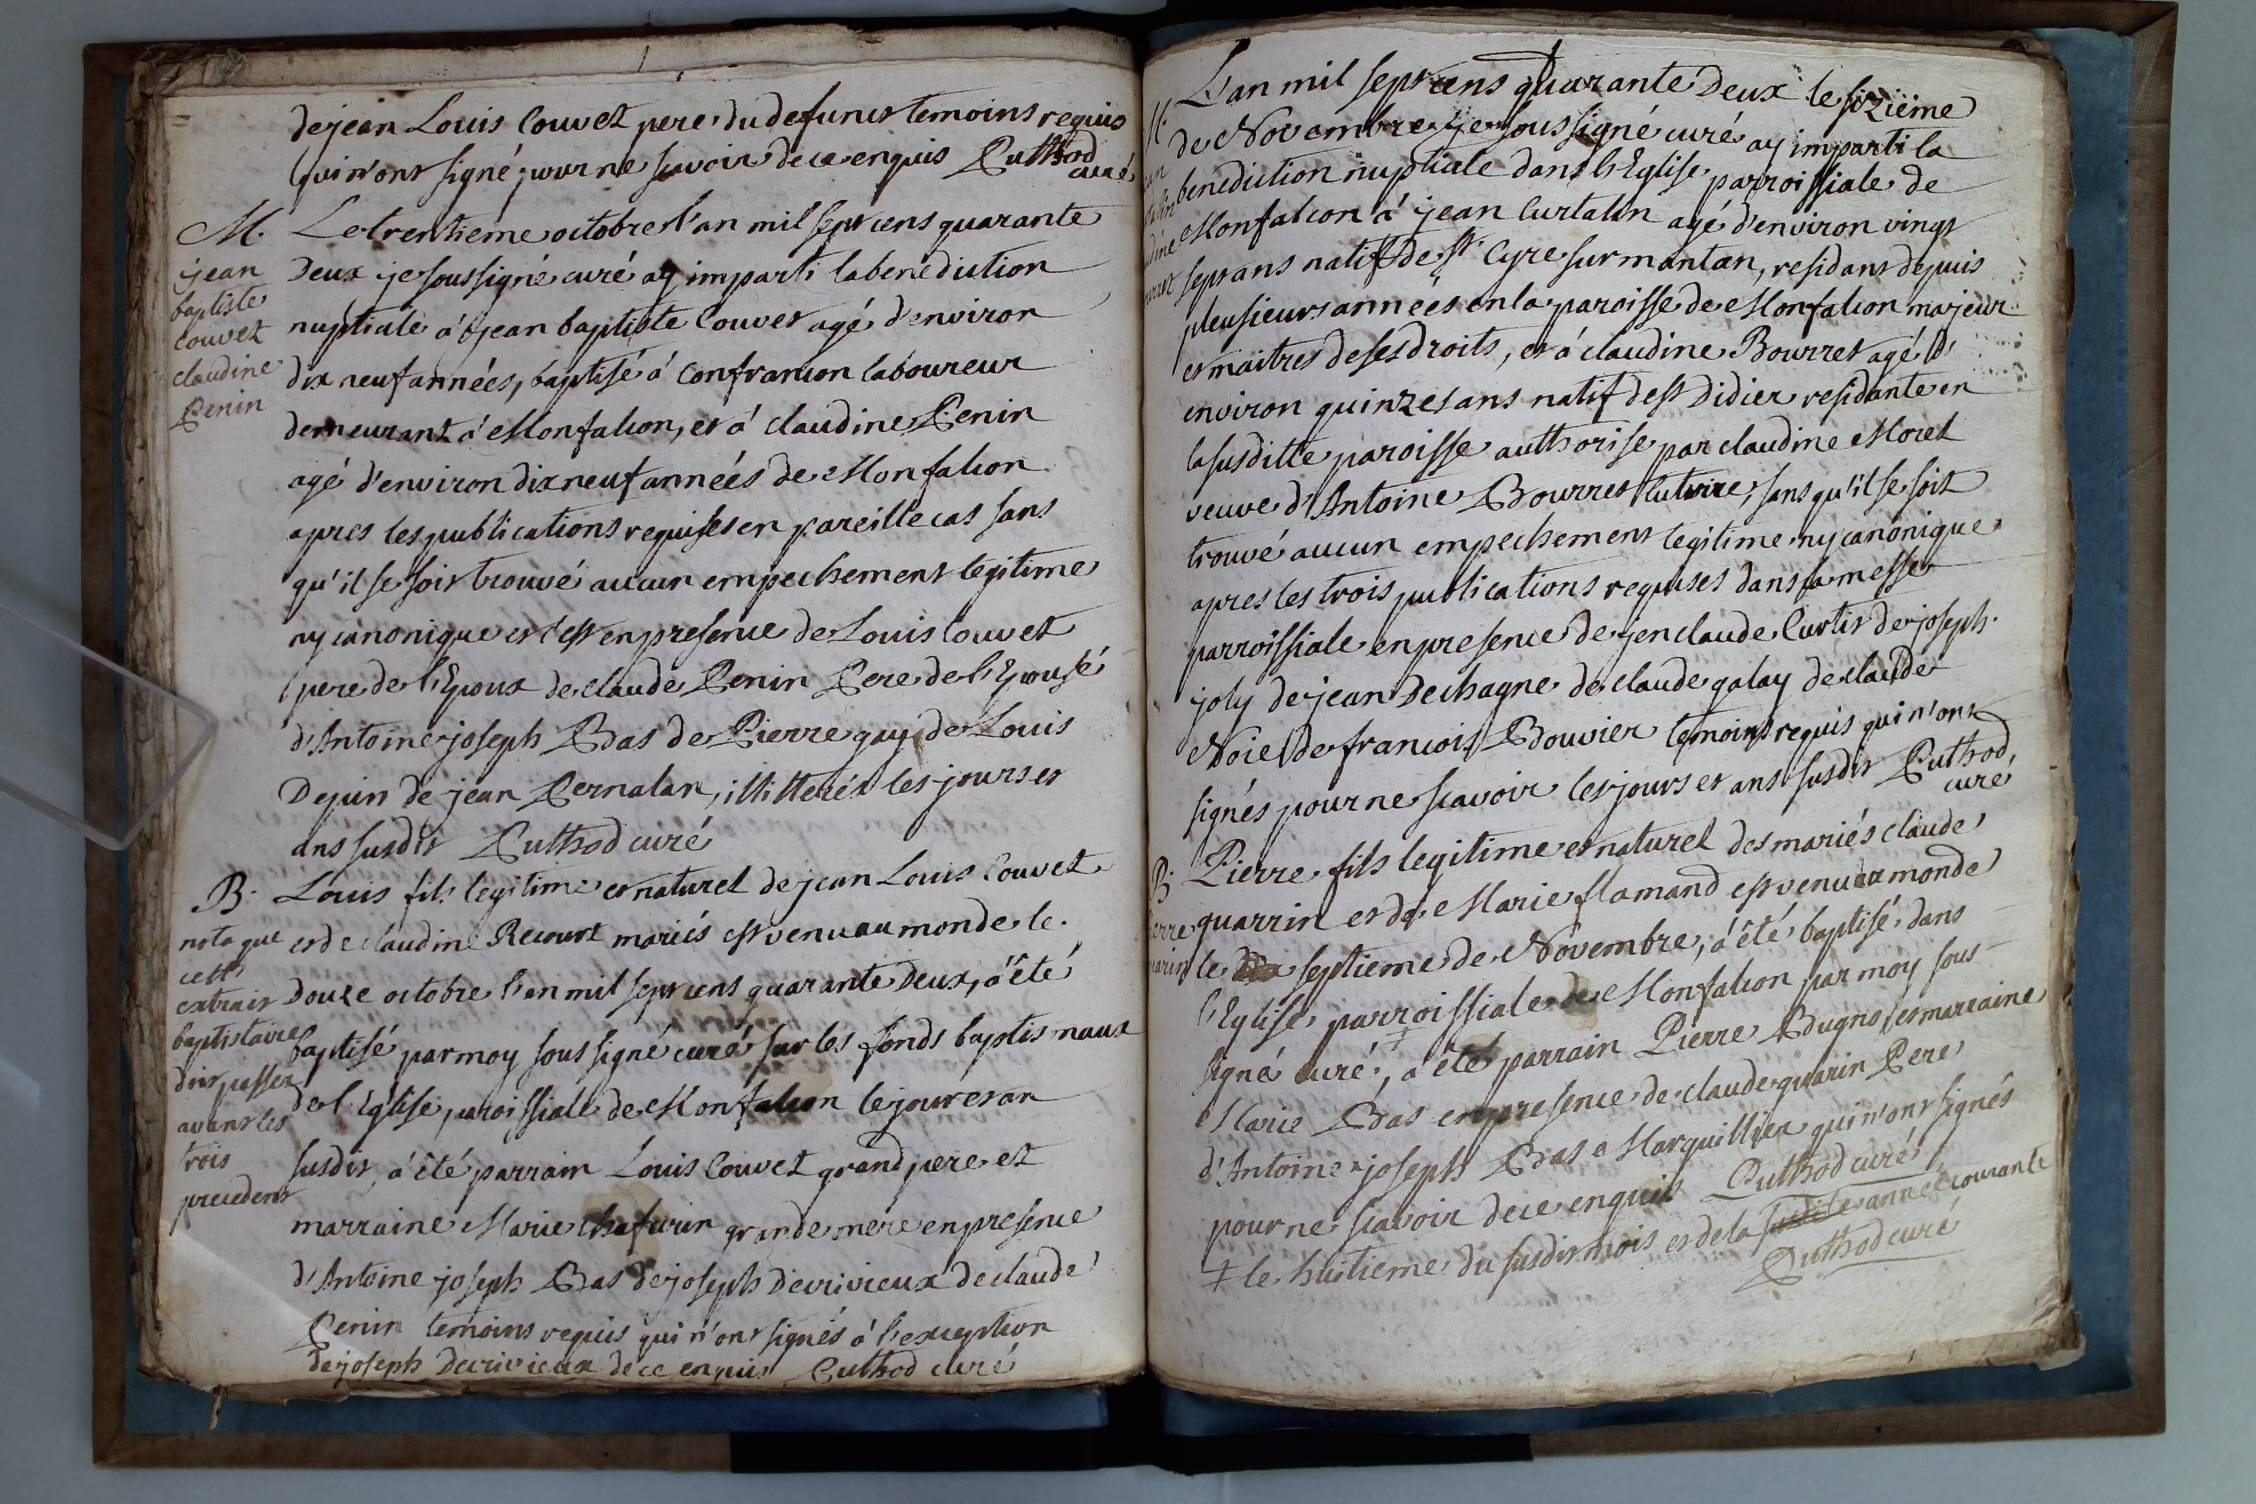 de jean Louis Couvet pere du defunct temoins requis
qui n'ont signé pour ne scavoir de ce enquis Puthod
curé
M.
jean
baptiste
couvet
claudine
Penin
Le trentieme octobre l'an mil sept cens quarante
Deux je soussigné curé ay imparti la benediction
nuptiale á jean baptiste Couvet agé d'environ
dix neuf années, baptisé á Confrancon laboureur
demeurant á Monfalcon, et á claudine Penin
agé d'environ dix neuf années de Monfalcon
apres les publications requises en pareille cas sans
qu'il se soit trouvé aucun empechement legitime
ny canonique et c'est en presence de Louis Couvet
pere de l'Epoux de claude Penin Pere de l'Epousé
d'Antoine joseph Bas de Pierre gay de Louis
Depin de jean Pernalan, illitterés les jours et
ans susdit Puthod curé
B.
nota que
cest
extrait
baptistaire
doit passer
avant les
trois
precedent
Louis fils legitime et naturel de jean Louis Couvet
et de claudine Recourt mariés est venu au monde le
Douze octobre l'an mil sept cens quarante Deux, á été
baptisé par moy soussigné curé sur les fonds baptismaux
de l'Eglise paroissiale de Monfalcon le jour et an
susdit, á été parrain Louis Couvet grand pere et
marraine Marie Chafurin grande mere en presence
d'Antoine joseph Bas de joseph Decrivieux de claude
Penin temoins requis qui n'ont signés á l'exception
de joseph Decrivieux de ce enquis Puthod curé
L'an mil sept cens quarante Deux le sizième
de Novembre je soussigné curé ay imparti la
benediction nuptiale dans l'Eglise parroissiale de
Monfalcon á jean Curtalin agé d'environ vingt
sept ans natif de st Cyre sur mantan, residant depuis
plusieurs années en la paroisse de Monfalcon majeur
et maitres de ses droits, et á claudine Bourret agé d'
environ quinzes ans natif de st Didier residante en
la susditte paroisse authorise par claudine Morel
veuve d'Antoine Bourret tutrice, sans qu'il se soit
trouvé aucun empechement legitime ny canonique
apres les trois publications requises dans la messe
parroissiale en presence de jen claude Curtis de joseph
joly de jean Dechagne de claude galay de claude
Noiel de francois Bouvier temoins requis qui n'ont
signés pour ne scavoir les jours et ans susdit Puthod
curé
B.
Pierre fils legitime et naturel des mariés claude
quarrin et de Marie flamand est venu au monde
le septieme de Novembre, á été baptisé dans
l'Eglise parroissiale de Monfalcon par moy sous
signé curé ‡, á été parrain Pierre Bugno, et marraine
Marie Bas en presence de claude quarin Pere
d'Antoine joseph Bas Marguillier qui n'ont signés
pour ne scavoir de ce enquis Puthod curé
‡ le huitieme du susdit mois et de la susdite année courante
Puthod curé